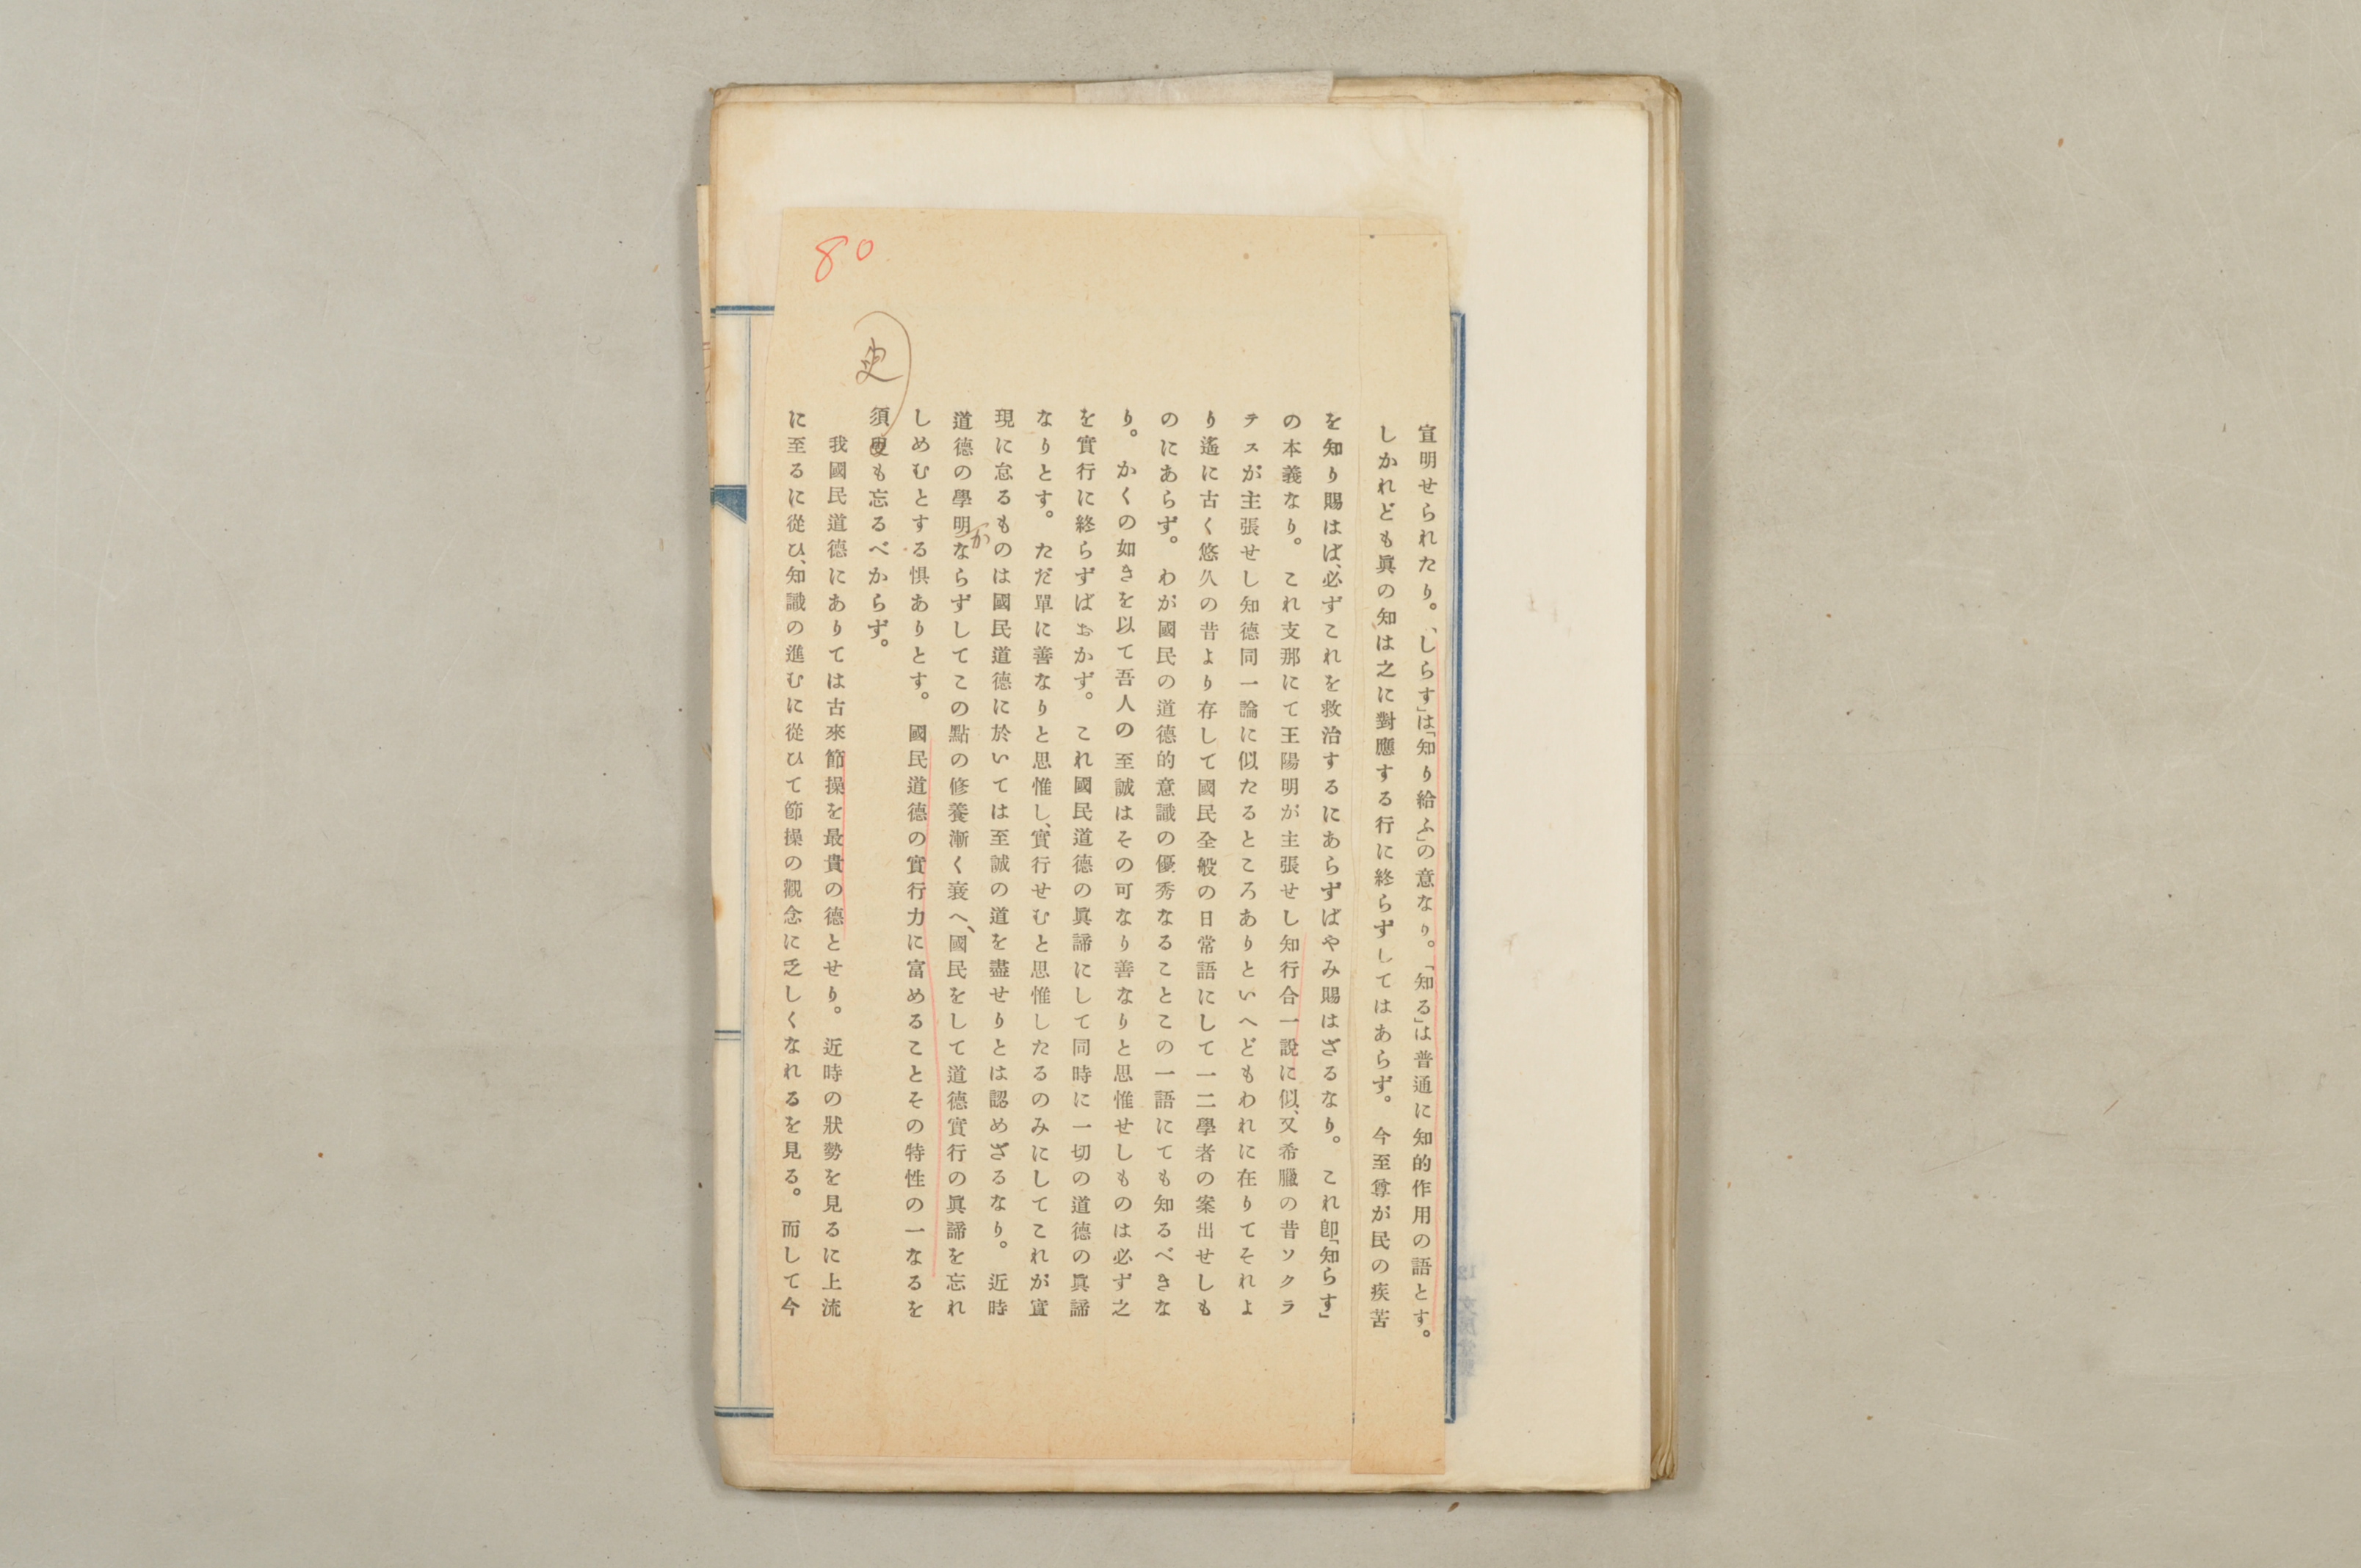 80
宣明せられたり。「しらす」は「知り給ふ」の意なり。「知る」は普通に知的作用の語とす。
しかれども眞の知は之に對應する行に終らずしてはあらず。今至尊が民の疾苦
を知り賜はば、必ずこれを救治するにあらずばやみ賜はざるなり。これ卽「知らす」
の本義なり。これ支那にて王陽明が主張せし知行合一說に似、又希臘の昔ソクラ
テスが主張せし知德同一論に似たるところありといへどもわれに在りてそれよ
り遙に古く悠久の昔より存して國民全般の日常語にして一二學者の案出せしも
のにあらず。わが國民の道德的意識の優秀なることこの一語にても知るべきな
り。かくの如きを以て吾人の至誠はその可なり善なりと思惟せしものは必ず之
を實行に終らずばおかず。これ國民道德の眞諦にして同時に一切の道德の眞諦
なりとす。ただ單に善なりと思惟し、實行せむと思惟したるのみにしてこれが實
現に怠るものは國民道德に於いては至誠の道を盡せりとは認めざるなり。近時
道德の學明ならずしてこの點の修養漸く衰へ、國民をして道德實行の眞諦を忘れ
か
しめむとする惧ありとす。國民道德の實行力に富めることその特性の一なるを
須臾も忘るべからず。
臾
我國民道德にありては古來節操を最貴の德とせり。近時の狀勢を見るに上流
に至るに從ひ、知識の進むに從ひて節操の觀念に乏しくなれるを見る。而して今